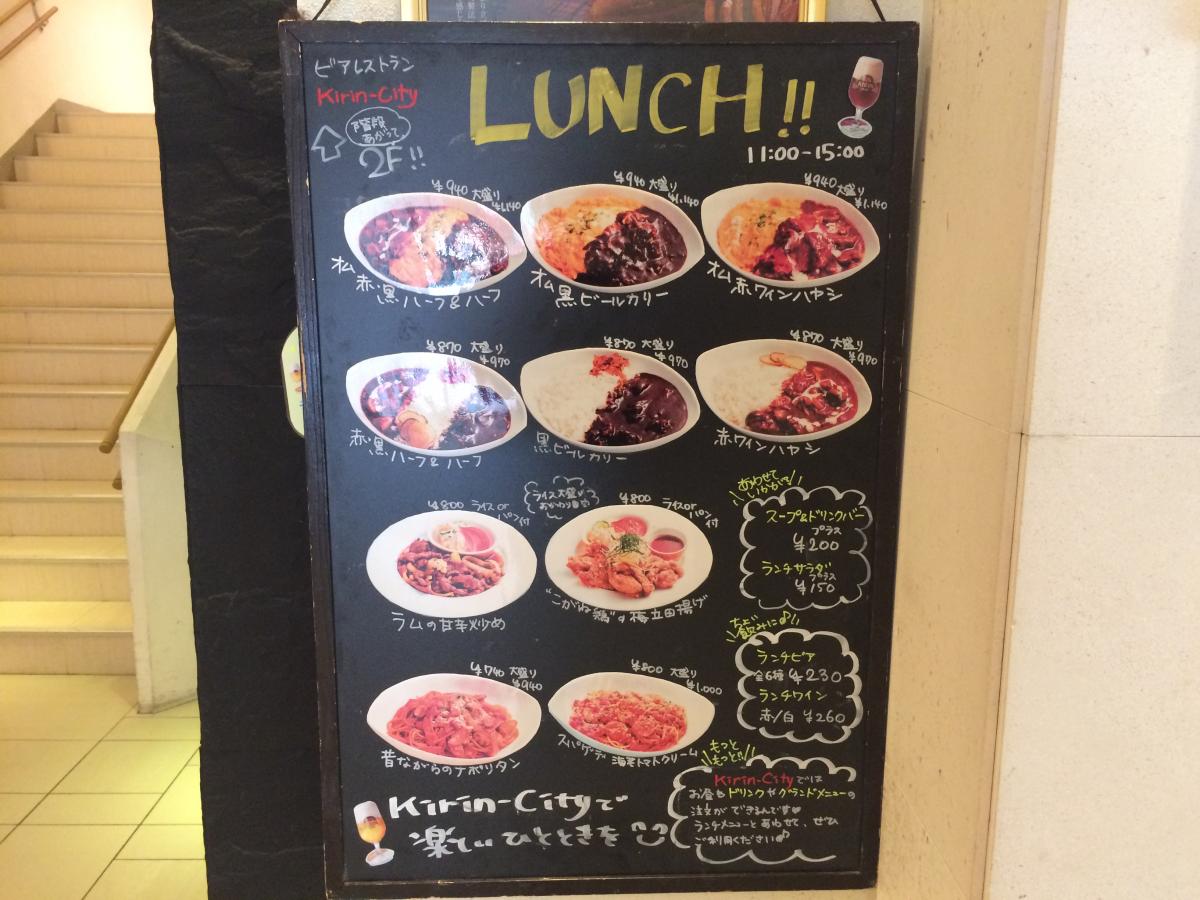 ビアレストラン
Kirin-City
階段
あがって
2F!!
LUNCH!!
11:00-15:00
¥940 大盛り
¥1,140
オム
赤・黒ハーフ&ハーフ
¥940 大盛り
¥1,140
オム
黒ビールカリー
¥940 大盛り
¥1,140
オム
赤ワインハヤシ
¥870 大盛り
¥970
赤・黒ハーフ&ハーフ
¥870 大盛り
¥970
黒ビールカリー
¥870 大盛り
¥970
赤ワインハヤシ
¥800 ライスor
パン付
ラムの甘辛炒め
ライス大盛り
おかわり自由
¥800 ライスor
パン付
"こがね鶏"の梅立田揚げ
あわせて
いかがです
スープ&ドリンクバー
プラス
¥200
ランチサラダ
プラス
¥150
ちょい
飲みに♪
ランチビア
全6種 ¥230
ランチワイン
赤/白 ¥260
¥740 大盛り
¥940
昔ながらのナポリタン
¥800 大盛り
¥1,000
スパゲッティ 海老トマトクリーム
もっと
もっと!!
Kirin-Cityでは
お昼もドリンクやグランドメニューの
注文ができるんです♥
ランチメニューとあわせて、ぜひ
ご利用ください♪
Kirin-Cityで
楽しいひとときを